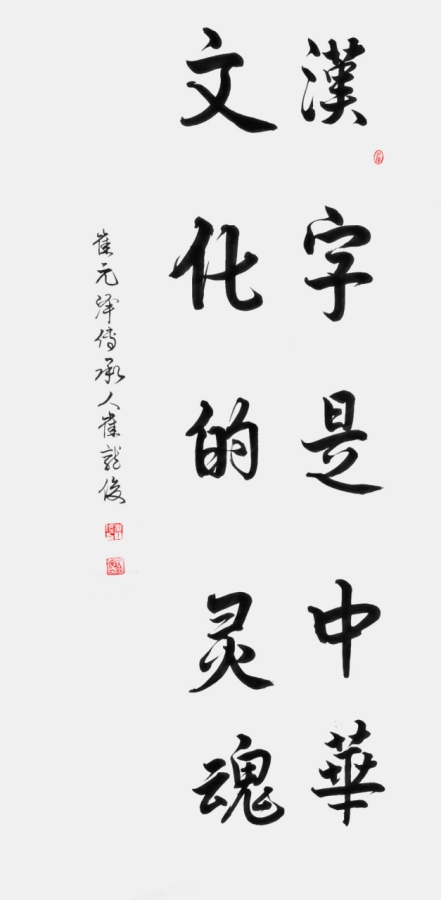 漢字是中華
文化的灵魂
崔元澤傳承人崔龍俊